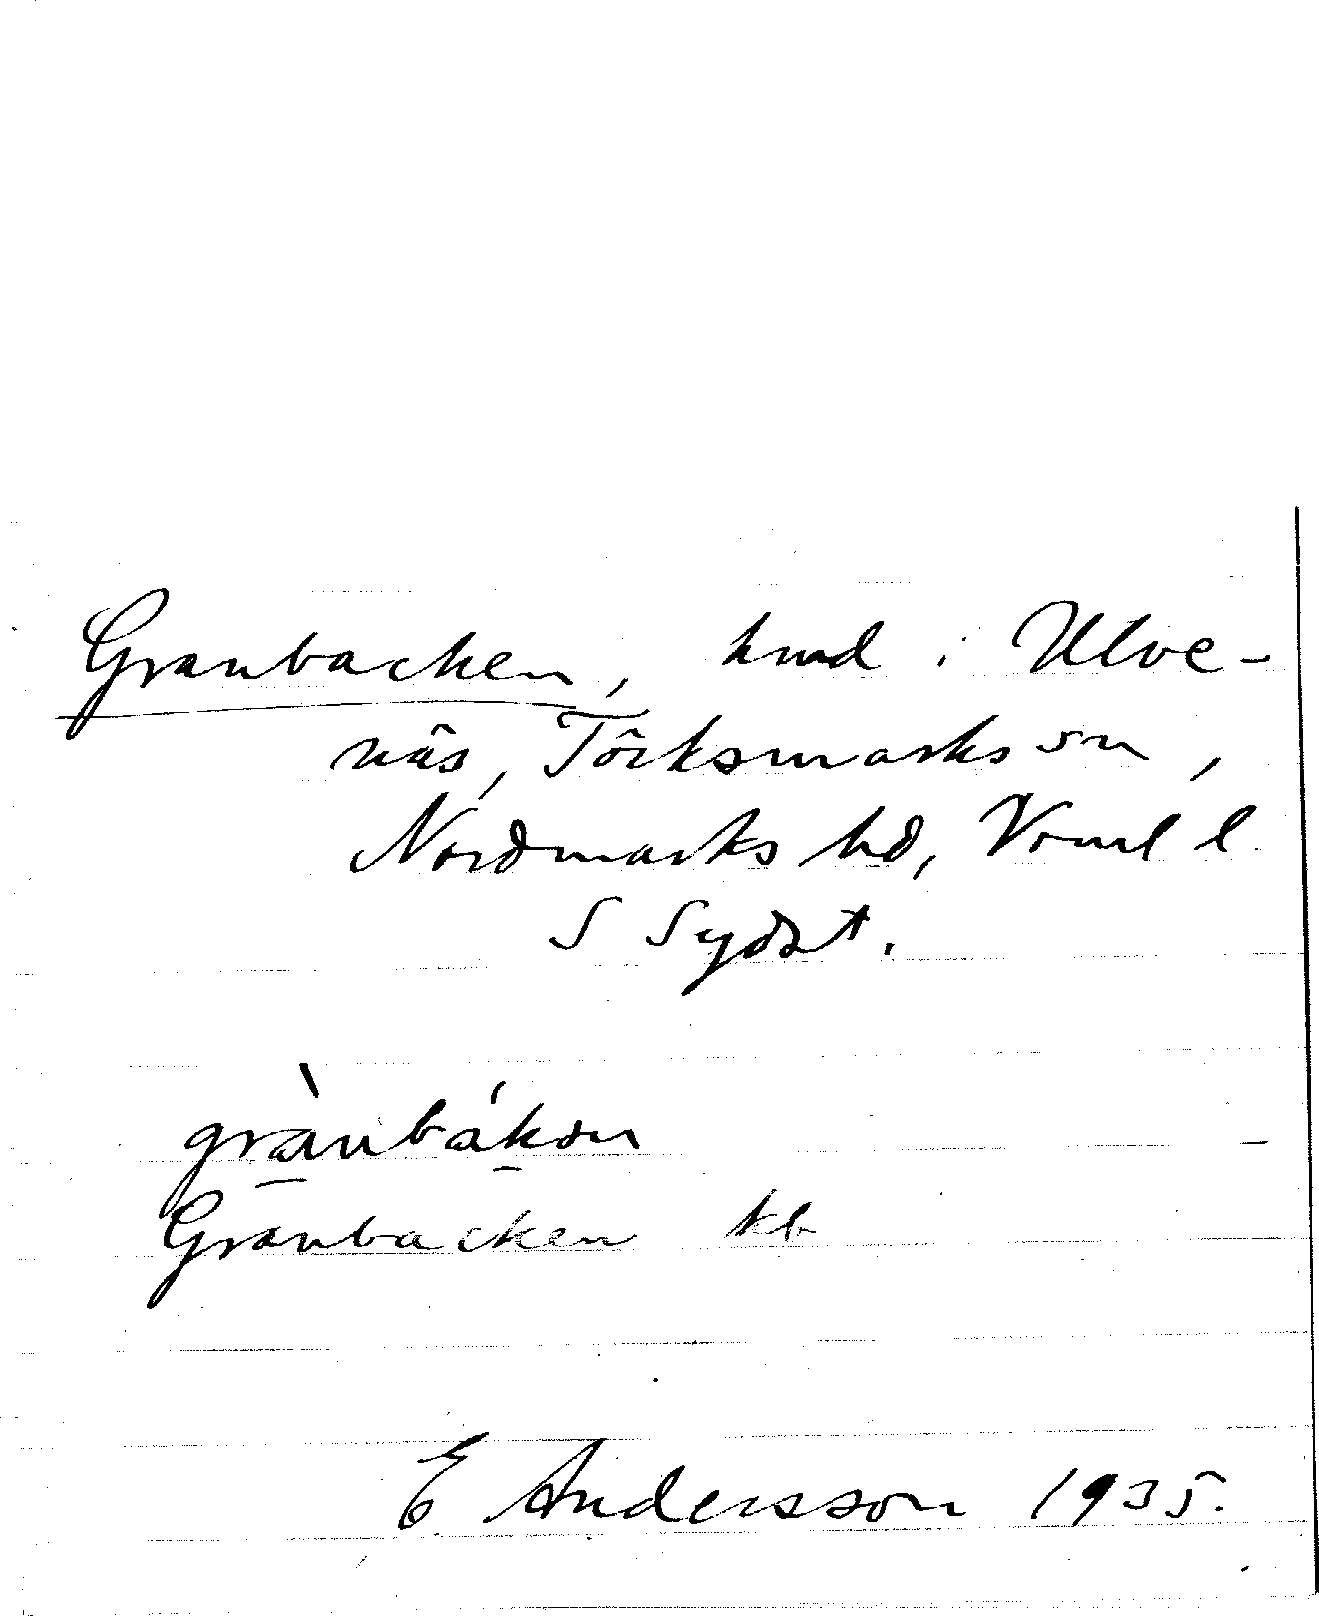 Granbacken, hmd i Ulve-
näs, Töcksmarks sn,
Nordmarks hd, Vrml l
S Sydöst.
grànbákən
Granbacken kb
E Andersson 1935.